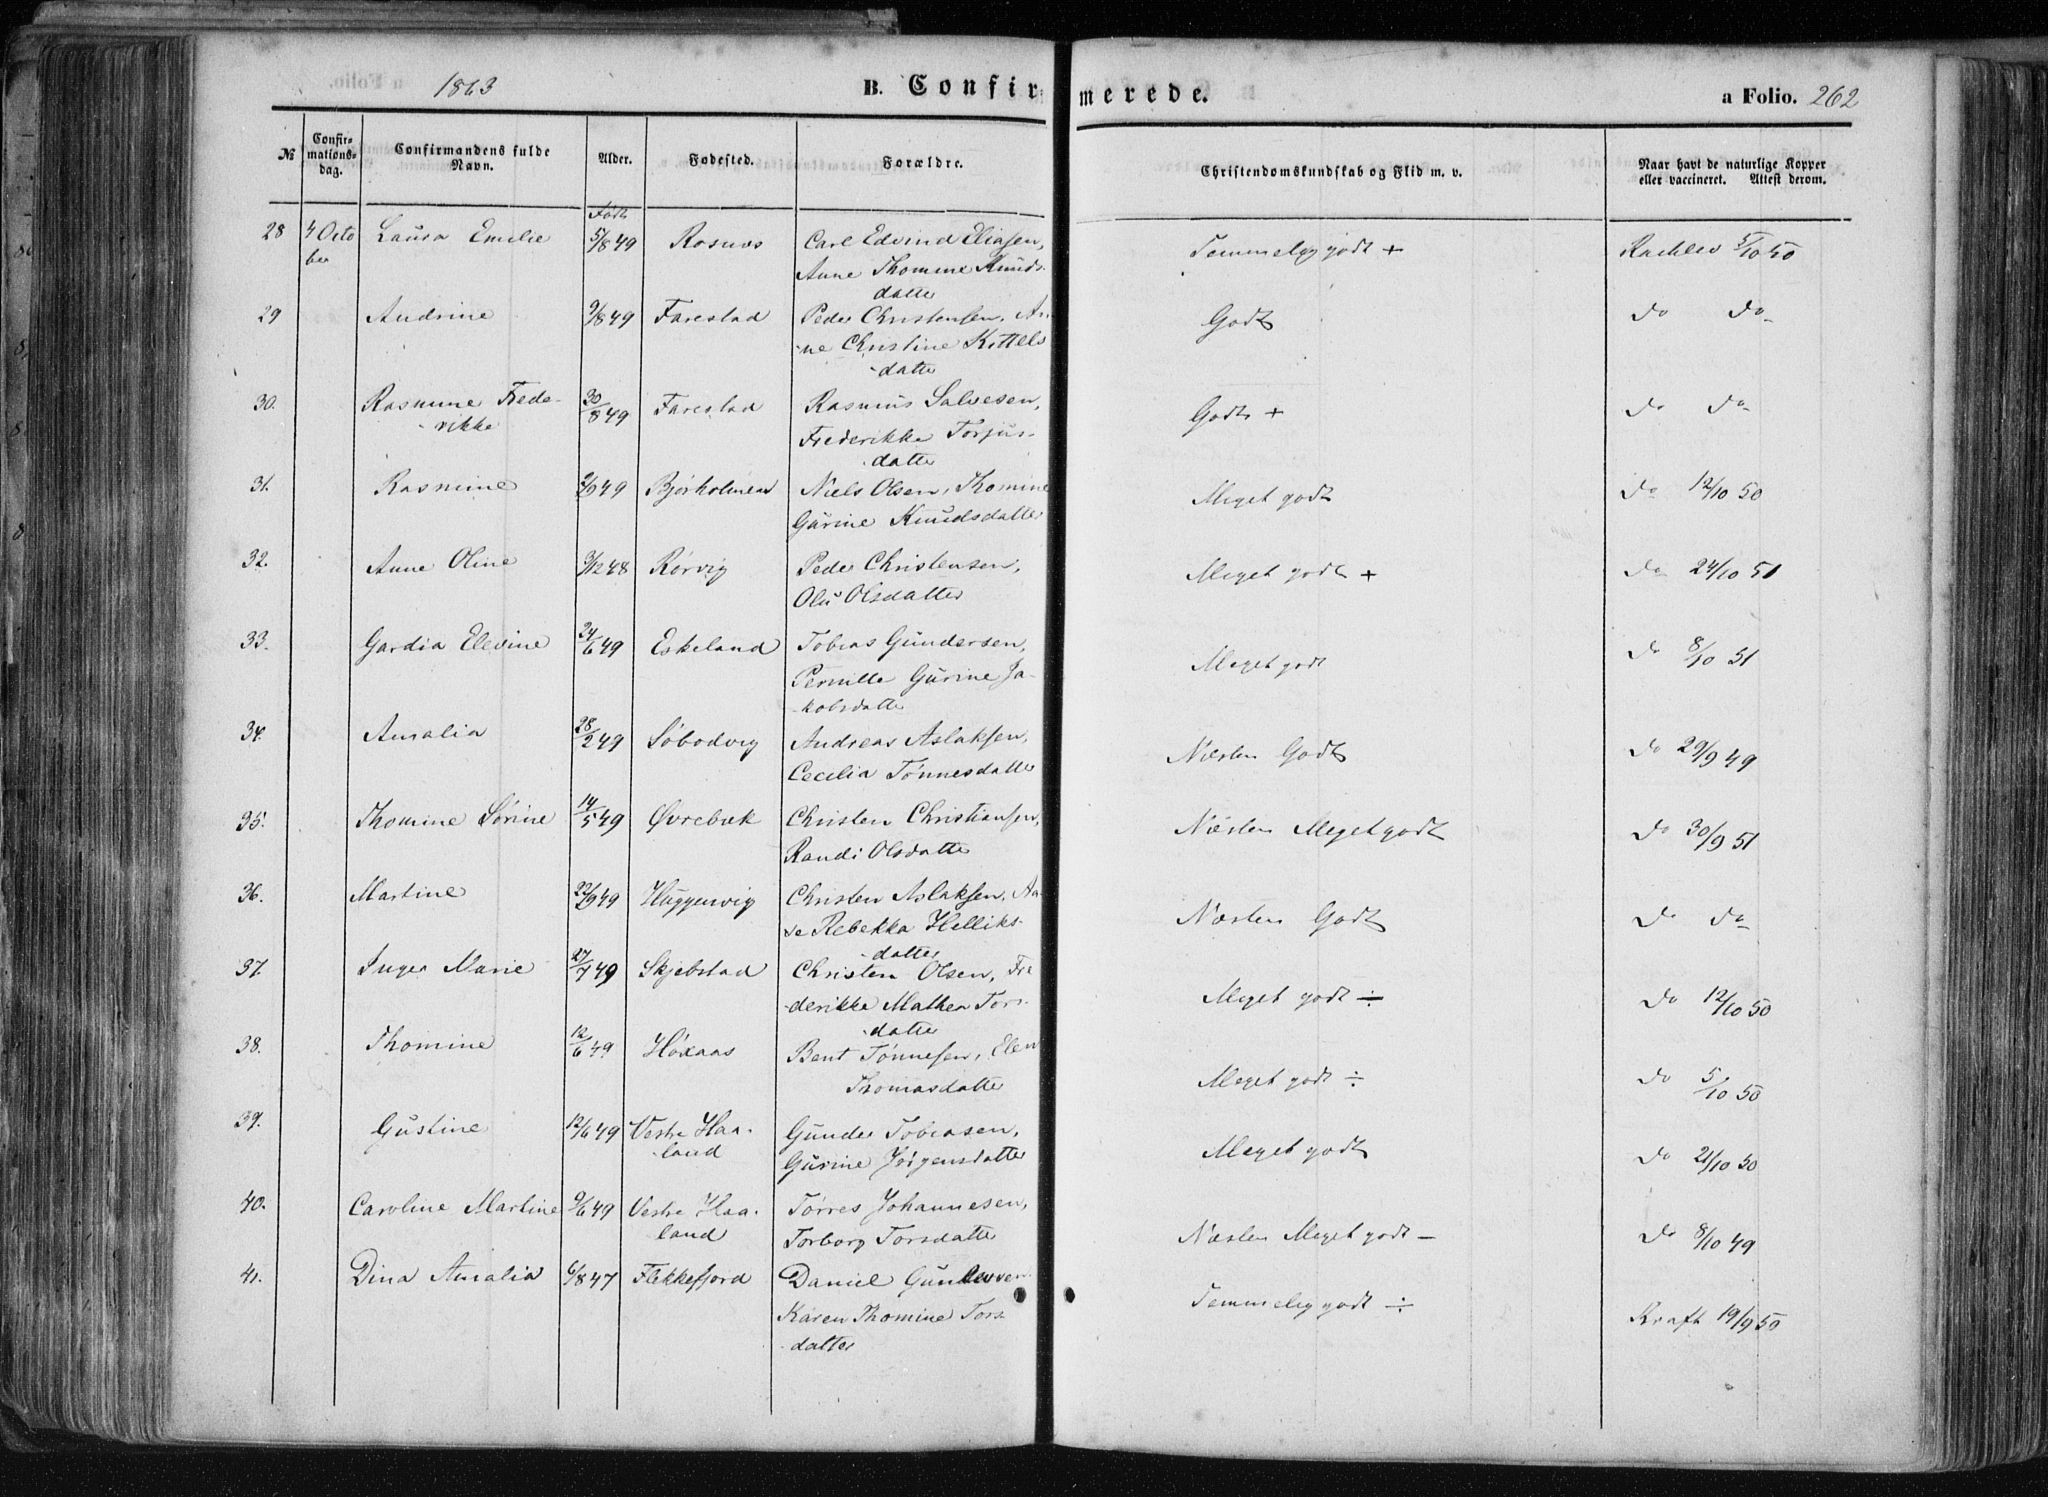 1863 B. Confirmerede. a Folio. 262
№ Confirmationsdag. Confirmandens fulde Navn. Alder. Fødested. Forældre. Christendomskundskab og Flid m. v. Naar havt de naturlige Kopper eller vaccineret. Attest derom.
Født
28 4 Octo Laura Emilie 5/8 49 Rosnes Carl Edvind Eliasen, Temmelig godt + 5/10 50
ber Anne Thomine Knuds-
datter
29 Andrine 9/8 49 Farestad Peder Christensen, An- Godt Do Do
-ne Christine Kittels
-datter
30. Rasmine Frede- 30/8 49 Farestad Rasmus Salvesen, Godt + Do Do
-rikke Frederikke Torjus-
-datter
31. Rasmine 2/9 49 Bjørholmen Niels Olsen, Thomine Meget godt Do 12/10 50
Gurine Knudsdatter
32. Anne Oline 3/12 48 Rørvig Peder Christensen, Meget godt + Do 24/10 51
Olu Olsdatter
33. Gardia Elevine 24/6 49 Eskeland Tobias Gundersen, Meget godt Do 8/10 51
Pernille Gurine Ja-
-kobsdatter
34. Amalia 28/2 49 Søbodvig Andreas Aslaksen, Næsten Godt Do 29/9 49
Cecilia Tønnesdatter
35. Thomine Sørine 14/5 49 Øvrebæk Christen Christiansen, Næsten Meget godt Do 30/9 51
Randi Olsdatter
36. Martine 22/9 49 Huggenvig Christen Aslaksen, Aa- Næsten Godt Do Do
se Rebekka Helliks-
-datter
37. Inger Marie 27/7 49 Skjebstad Christen Olsen, Fre Meget godt ÷ Do 12/10 50
-derikke Mathea Tors-
-datter
38. Thomine 12/6 49 Høxaas Bent Tønnesen, Elen Meget godt ÷ Do 5/10 50
Thomasdatter
39. Gustine 12/6 49 Vestre Haa- Gunder Tobiasen, Meget godt Do 21/10 50
-land Gurine Jørgensdatter
40. Caroline Martine 9/6 49 Vestre Haa- Tørres Johannesen, Næsten Meget godt - Do 8/10 49
land Torborg Torsdatter
41. Dina Amalia 6/8 47 Flekkefjord Daniel Gundersen Temmelig godt ÷ Kraft 19/9 50
Karen Thomine Tors-
-datter